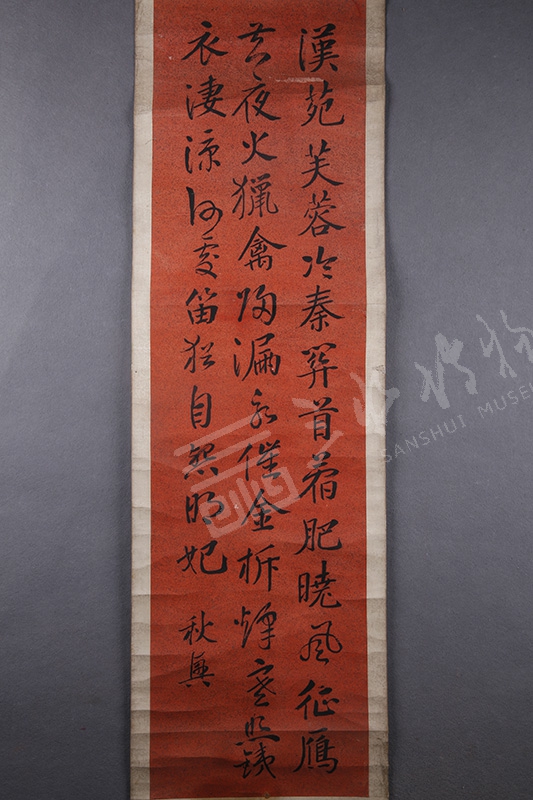 漢苑芙蓉冷秦關首蓿肥曉風征鴈
去夜火獵禽歸漏永催金柝烽寒照鐵
衣淒涼何處笛猶自怨明妃 秋興
SANSHUI MUSE